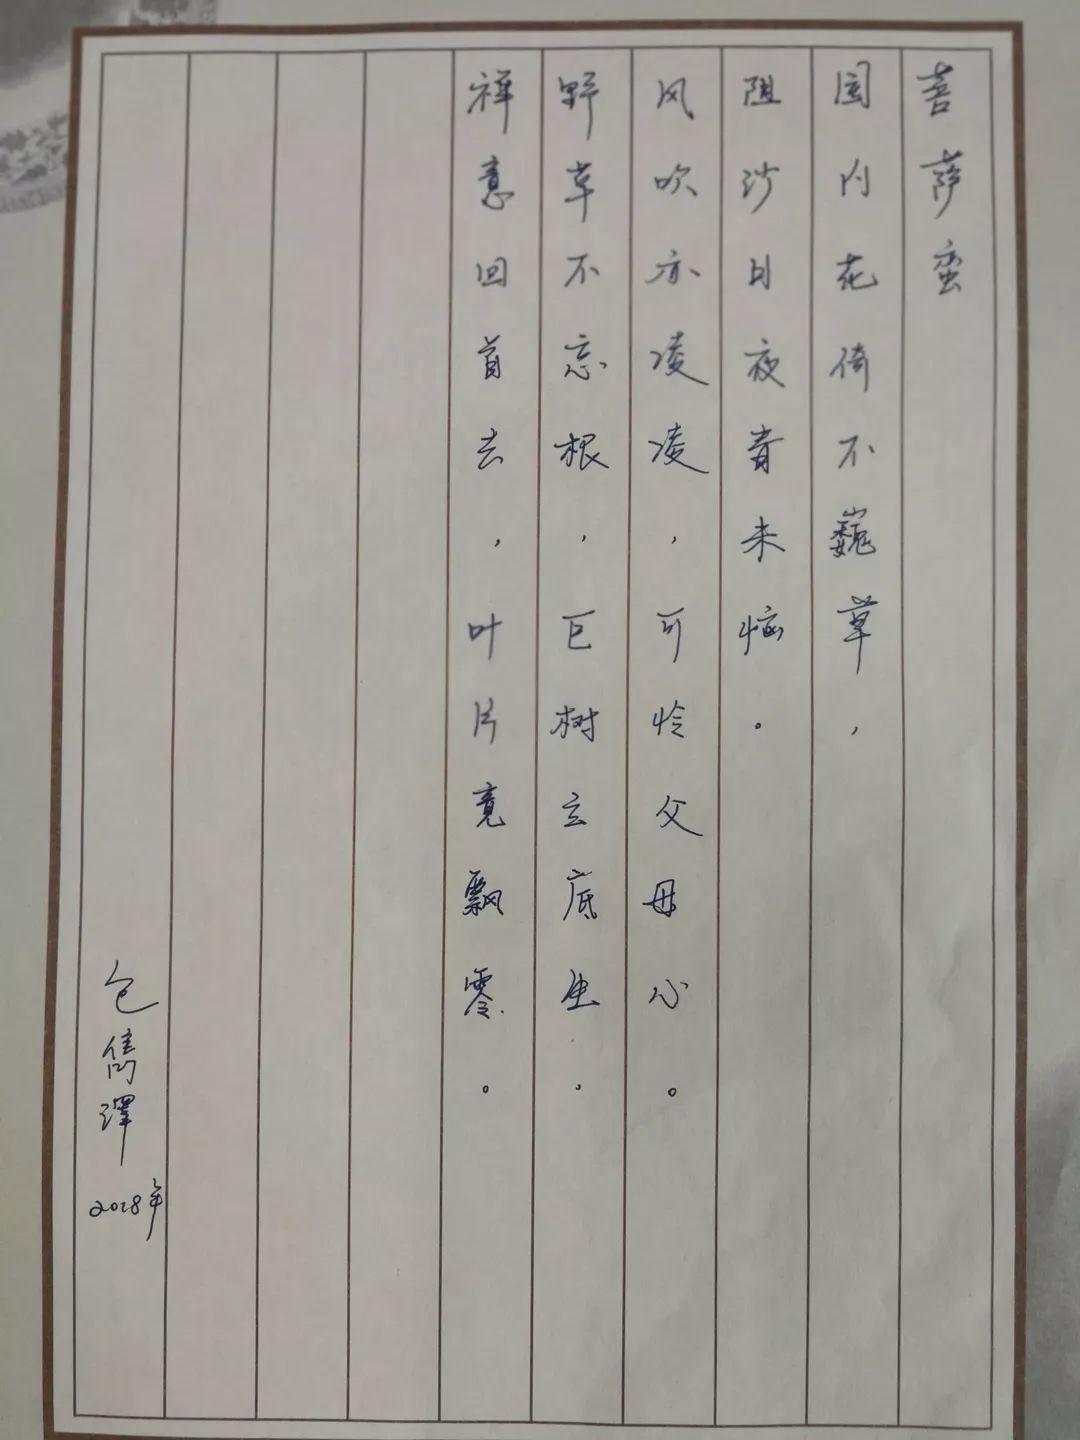 菩萨蛮
园内花倚不巍草，
阻沙日夜青未恼。
风吹亦凌凌，可怜父母心。
野草不忘根，巨树立底生.
禅意回首去，叶片竟飘零。
包雋泽
2018年